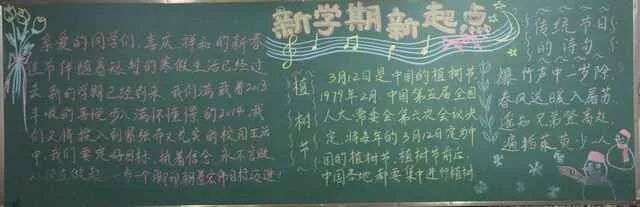 新学期新起点
亲爱的同学们,喜庆祥和的新春
佳节伴随着短暂的寒假生活已经过
去,新的学期已经到来,我们满载着2013
丰收的喜悦步入满怀憧憬的2014,我
们又将投入到紧张而又充实的校园生活
中,我们要定好目标,执着信念,永不言败
一步一个脚印朝着宏伟目标迈进!
植树节
3月12日是中国的植树节
1979年2月,中国第五届全国
人大常委会第六次会议决
定,将每年的3月12日定为中
国的植树节,植树节前后,
中国各地都要集中进行植树
传统节日
的诗句
爆竹声中一岁除
春风送暖入屠苏
遥知兄弟登高处,
遍插茱萸少一人